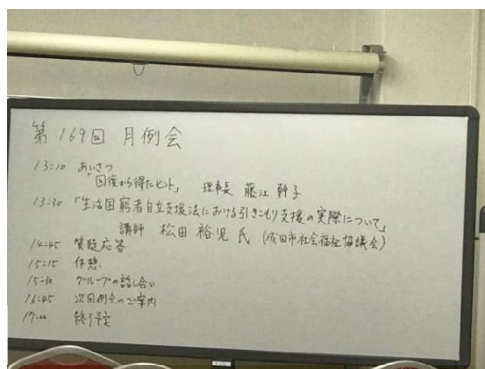 第169回 月例会
13:10 あいさつ
「回復から得たヒント」 理事長 藤江幹子
13:30 「生活困窮者自立支援法における引きこもり支援の実際について」
講師 松田裕児氏 (成田市社会福祉協議会)
14:45 質疑応答
15:15 休憩
15:30 グループの話し合い
16:45 次回例会のご案内
17:00 終了予定